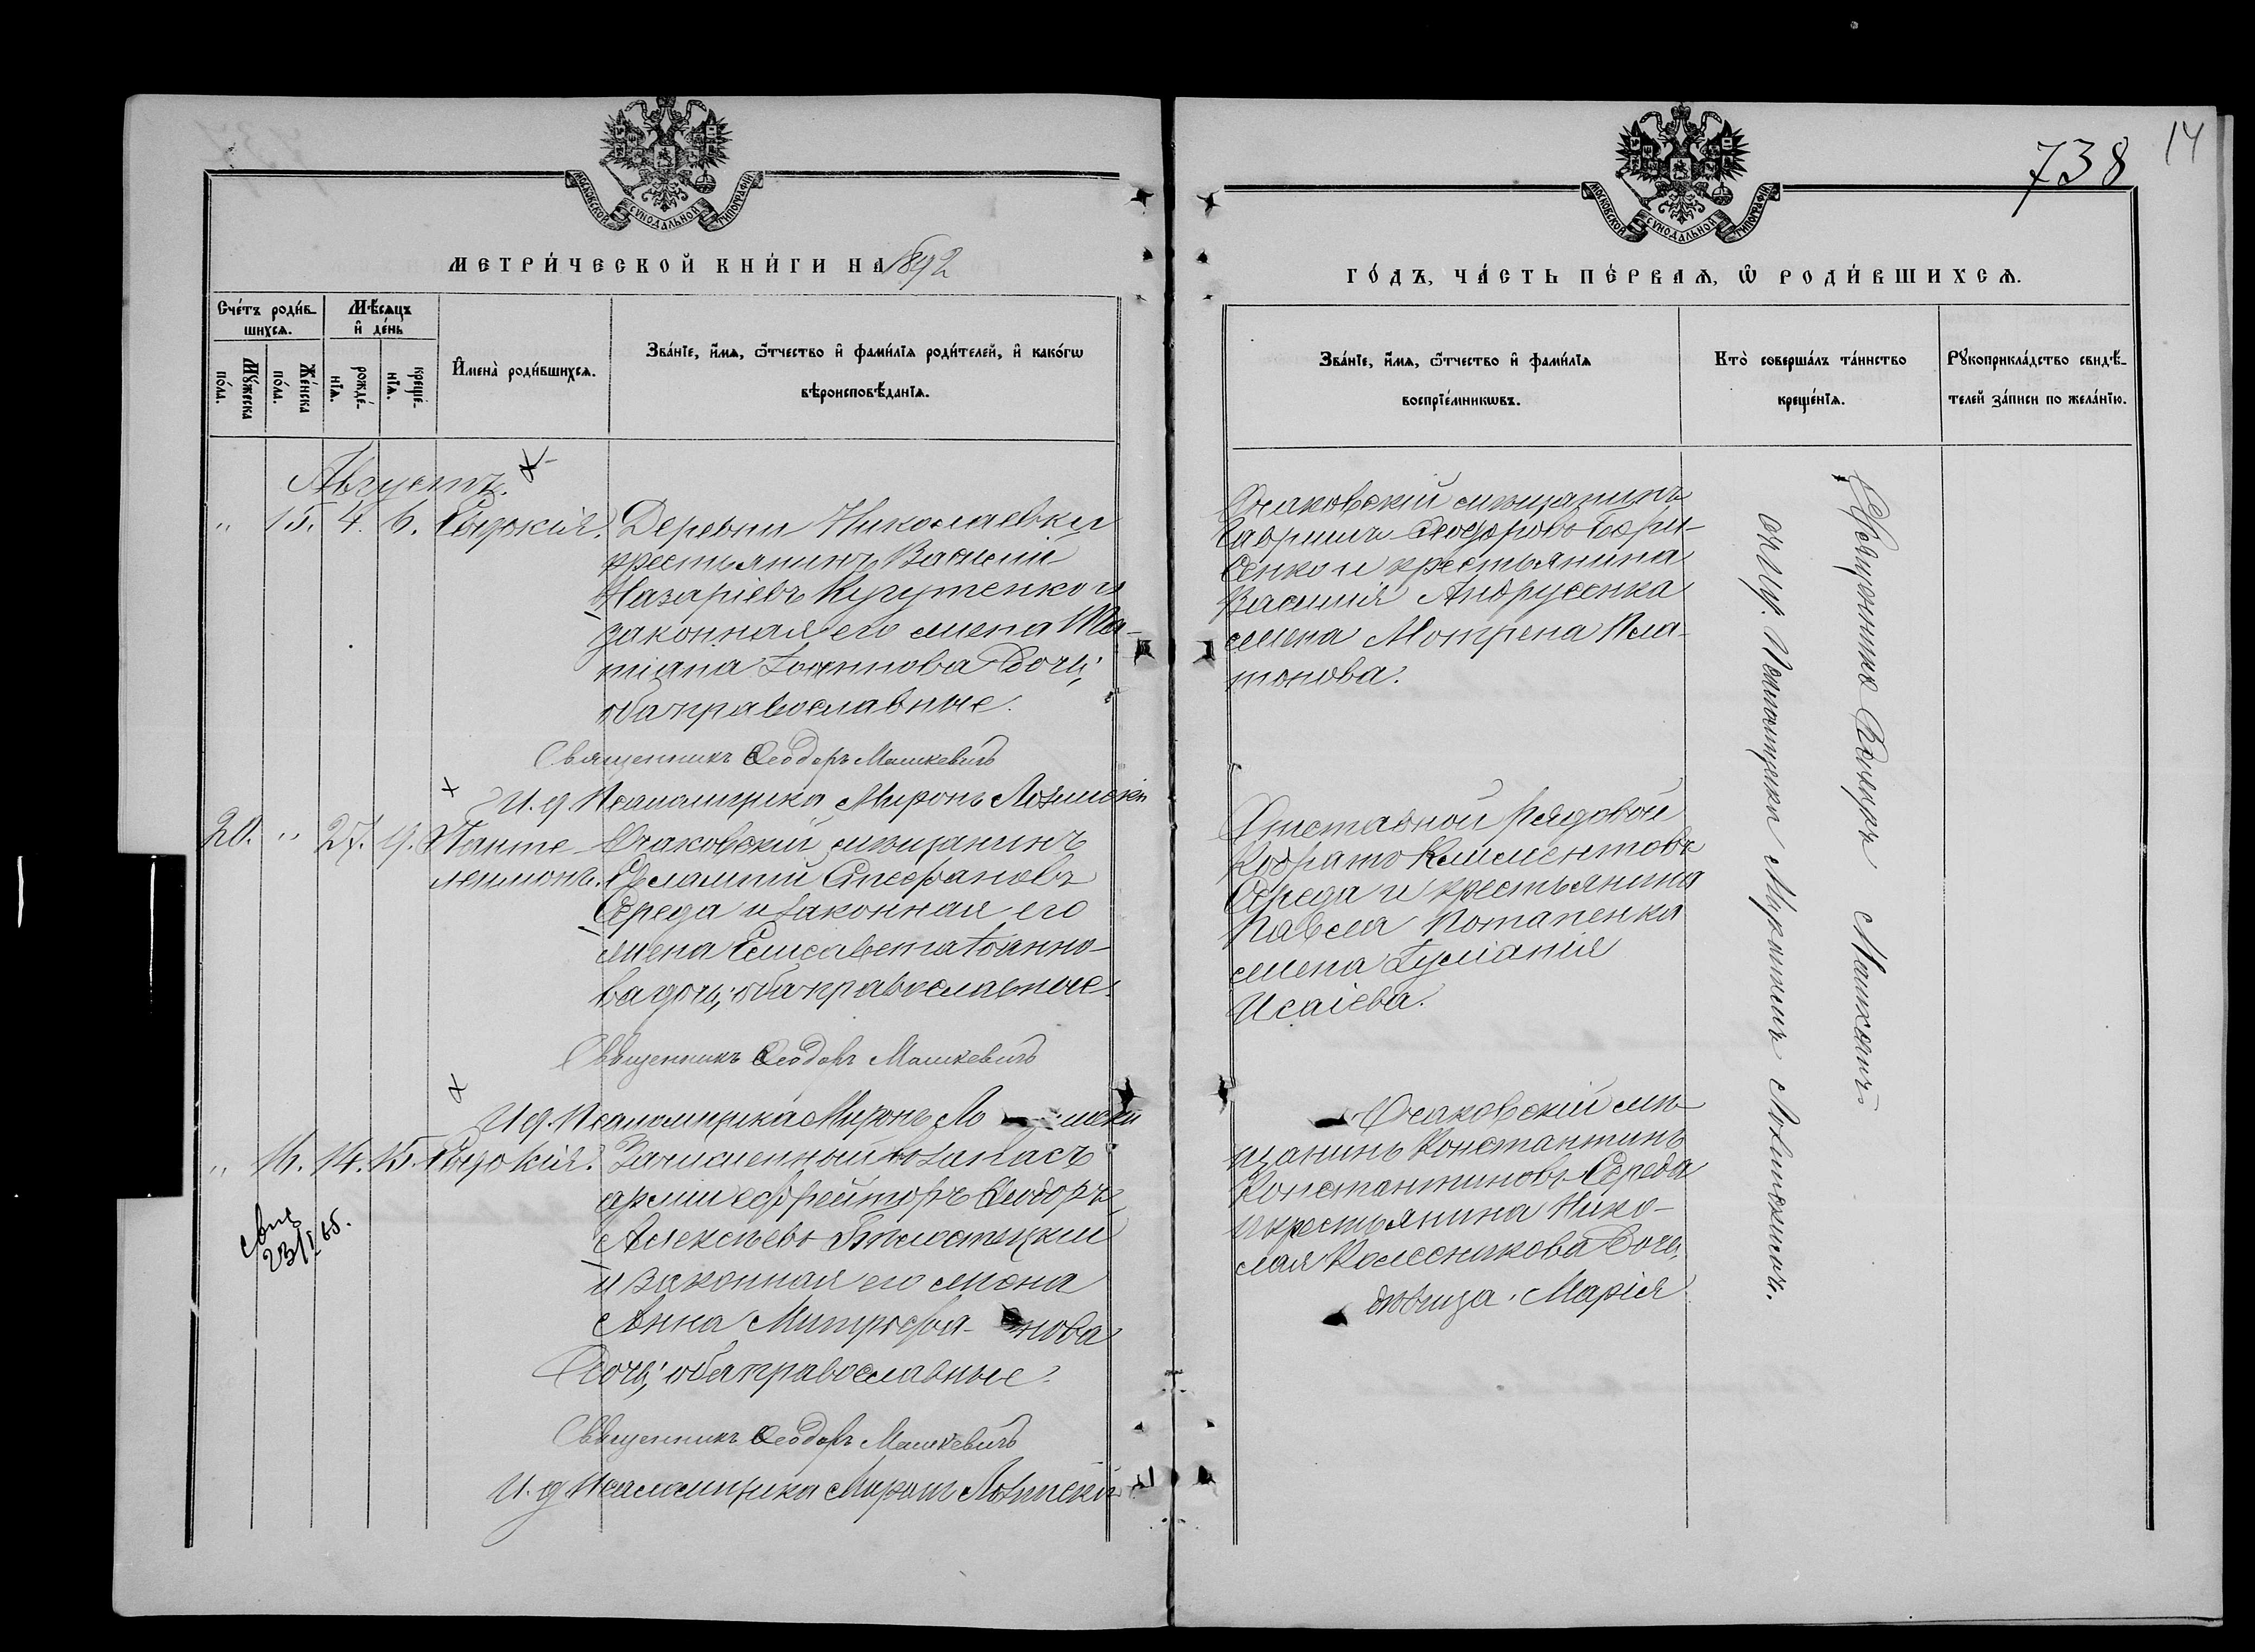 738
14
МОСКОВСКОЙ СУНОДАЛЬНОЙ ТИПОГРАФІИ
МЕТРИ́ЧЕСКОЙ КНИ́ГИ НА 1892
Сче́тъ роди́в-
шихсѧ.
Мѣ́сѧцъ
и҆ де́нь
Мꙋ́жеска
по́ла.
Же́нска
по́ла.
рожде́-
нїѧ.
креще́-
нїѧ.
И҆мена̀ роди́вшихсѧ.
Зва́нїе, и҆́мѧ, ѻ҆́тчество и҆ фами́лїѧ роди́телей, и҆ како́гѡ
вѣроисповѣ́данїѧ.
Августъ.
" 15. 4. 6. Евдокія. Деревни Николаевки
крестьянинъ Василій
Назаріевъ Кугутенко и
законная его жена Та-
тіана Іоаннова дочь;
оба православные.
Священникъ Ѳеодоръ Машкевичъ
И. д. Псаломщика Миронъ Лозинскій
20. " 27. 9. Панте- Очаковскій мѣщанинъ
леимонъ. Евлампій Стефановъ
Середа и законная его
жена Елисавета Іоанно-
ва дочь; оба православные.
Священникъ Ѳеодоръ Машкевичъ
И. д. Псаломщика Миронъ
" 16. 14. 15. Евдокія. Зачисленный въ запасъ
арміи ефрейторъ Ѳеодоръ
Алексѣевъ
и законная его жена
Анна Митрофа- нова
дочь; оба православные.
Священникъ Ѳеодоръ Машкевичъ
И. д. Псаломщика Миронъ Лозинскій
МОСКОВСКОЙ СУНОДАЛЬНОЙ ТИПОГРАФІИ
ГО́ДЪ, ЧА́СТЬ ПЕ́РВАѦ, Ѽ РОДИ́ВШИХСѦ.
Зва́нїе, и҆́мѧ, ѻ҆́тчество и҆ фами́лїѧ
воспрїе́мникѡвъ.
Кто̀ соверша́лъ та́инство
креще́нїѧ.
Рꙋкоприкла́дство свидѣ́-
телей за́писи по жела́нїю.
Очаковскій мѣщанинъ
Гавріилъ Ѳеодоровъ Бори-
сенко и крестьянина
Василія Андрусенка
жена Мотрена Пла-
тонова.
Отставной рядовой
Кодратъ Климентовъ
Середа и крестьянина
Павла Потапенка
жена Іуліанія
Исаіева.
Очаковскій мѣ-
щанинъ Константинъ
Константиновъ Середа
и крестьянина Нико-
лая Колесникова дочь,
дѣвица Марія
Священникъ Ѳеодоръ Машкевичъ
съ и. д. Псаломщика Мирономъ Лозинскимъ.